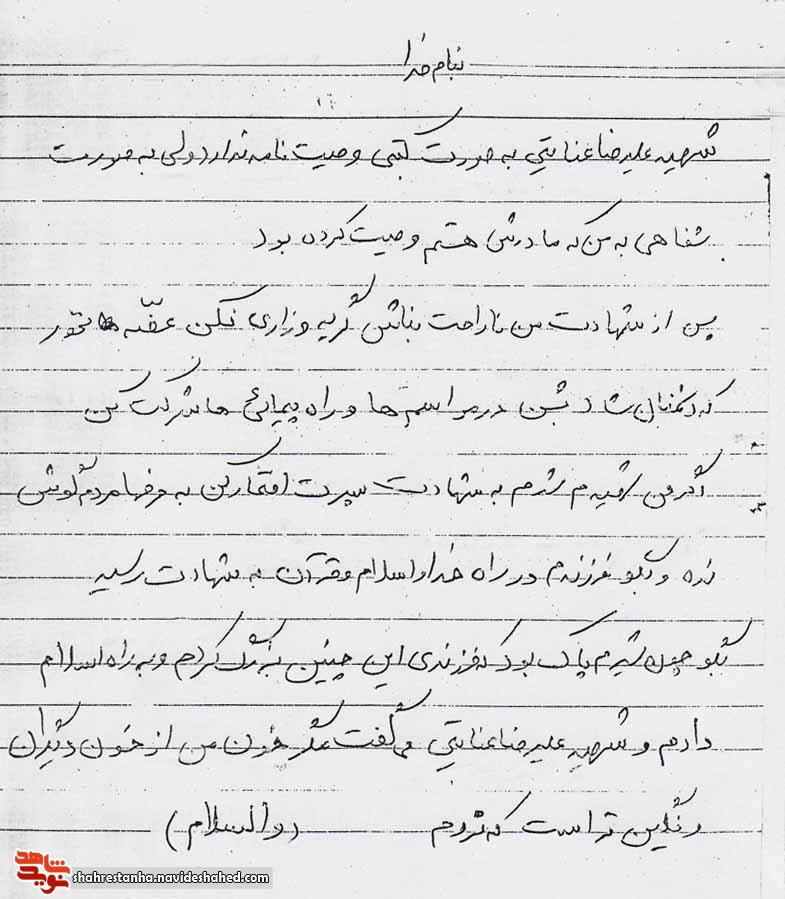 بنام خدا
شهید علیرضا عنایتی به صورت کتبی وصیت نامه ندارد ولی به صورت
شفاهی به من که مادرش هستم وصیت کرده بود
پس از شهادت من ناراحت نباش گریه وزاری نکن غصّه نخور
که دشمنان شاد بشن در مراسم ها و راه پیمائی ها شرکت کن
اگر من شهیدم شدم به شهادت پسرت افتخار کن به حرفها مردم گوش
نده و بگو فرزندم در راه خدا و اسلام و قرآن به شهادت رسید
بگو چون شیرم پاک بود که فرزندی این چنین بزرگ کردم و به راه اسلام
دادم و شهید علیرضا عنایتی می گفت مگر خون من از خون دیگران
رنگین تر است که نروم (والسلام)
شاهد
نوید
shahrestanha.navideshahed.com